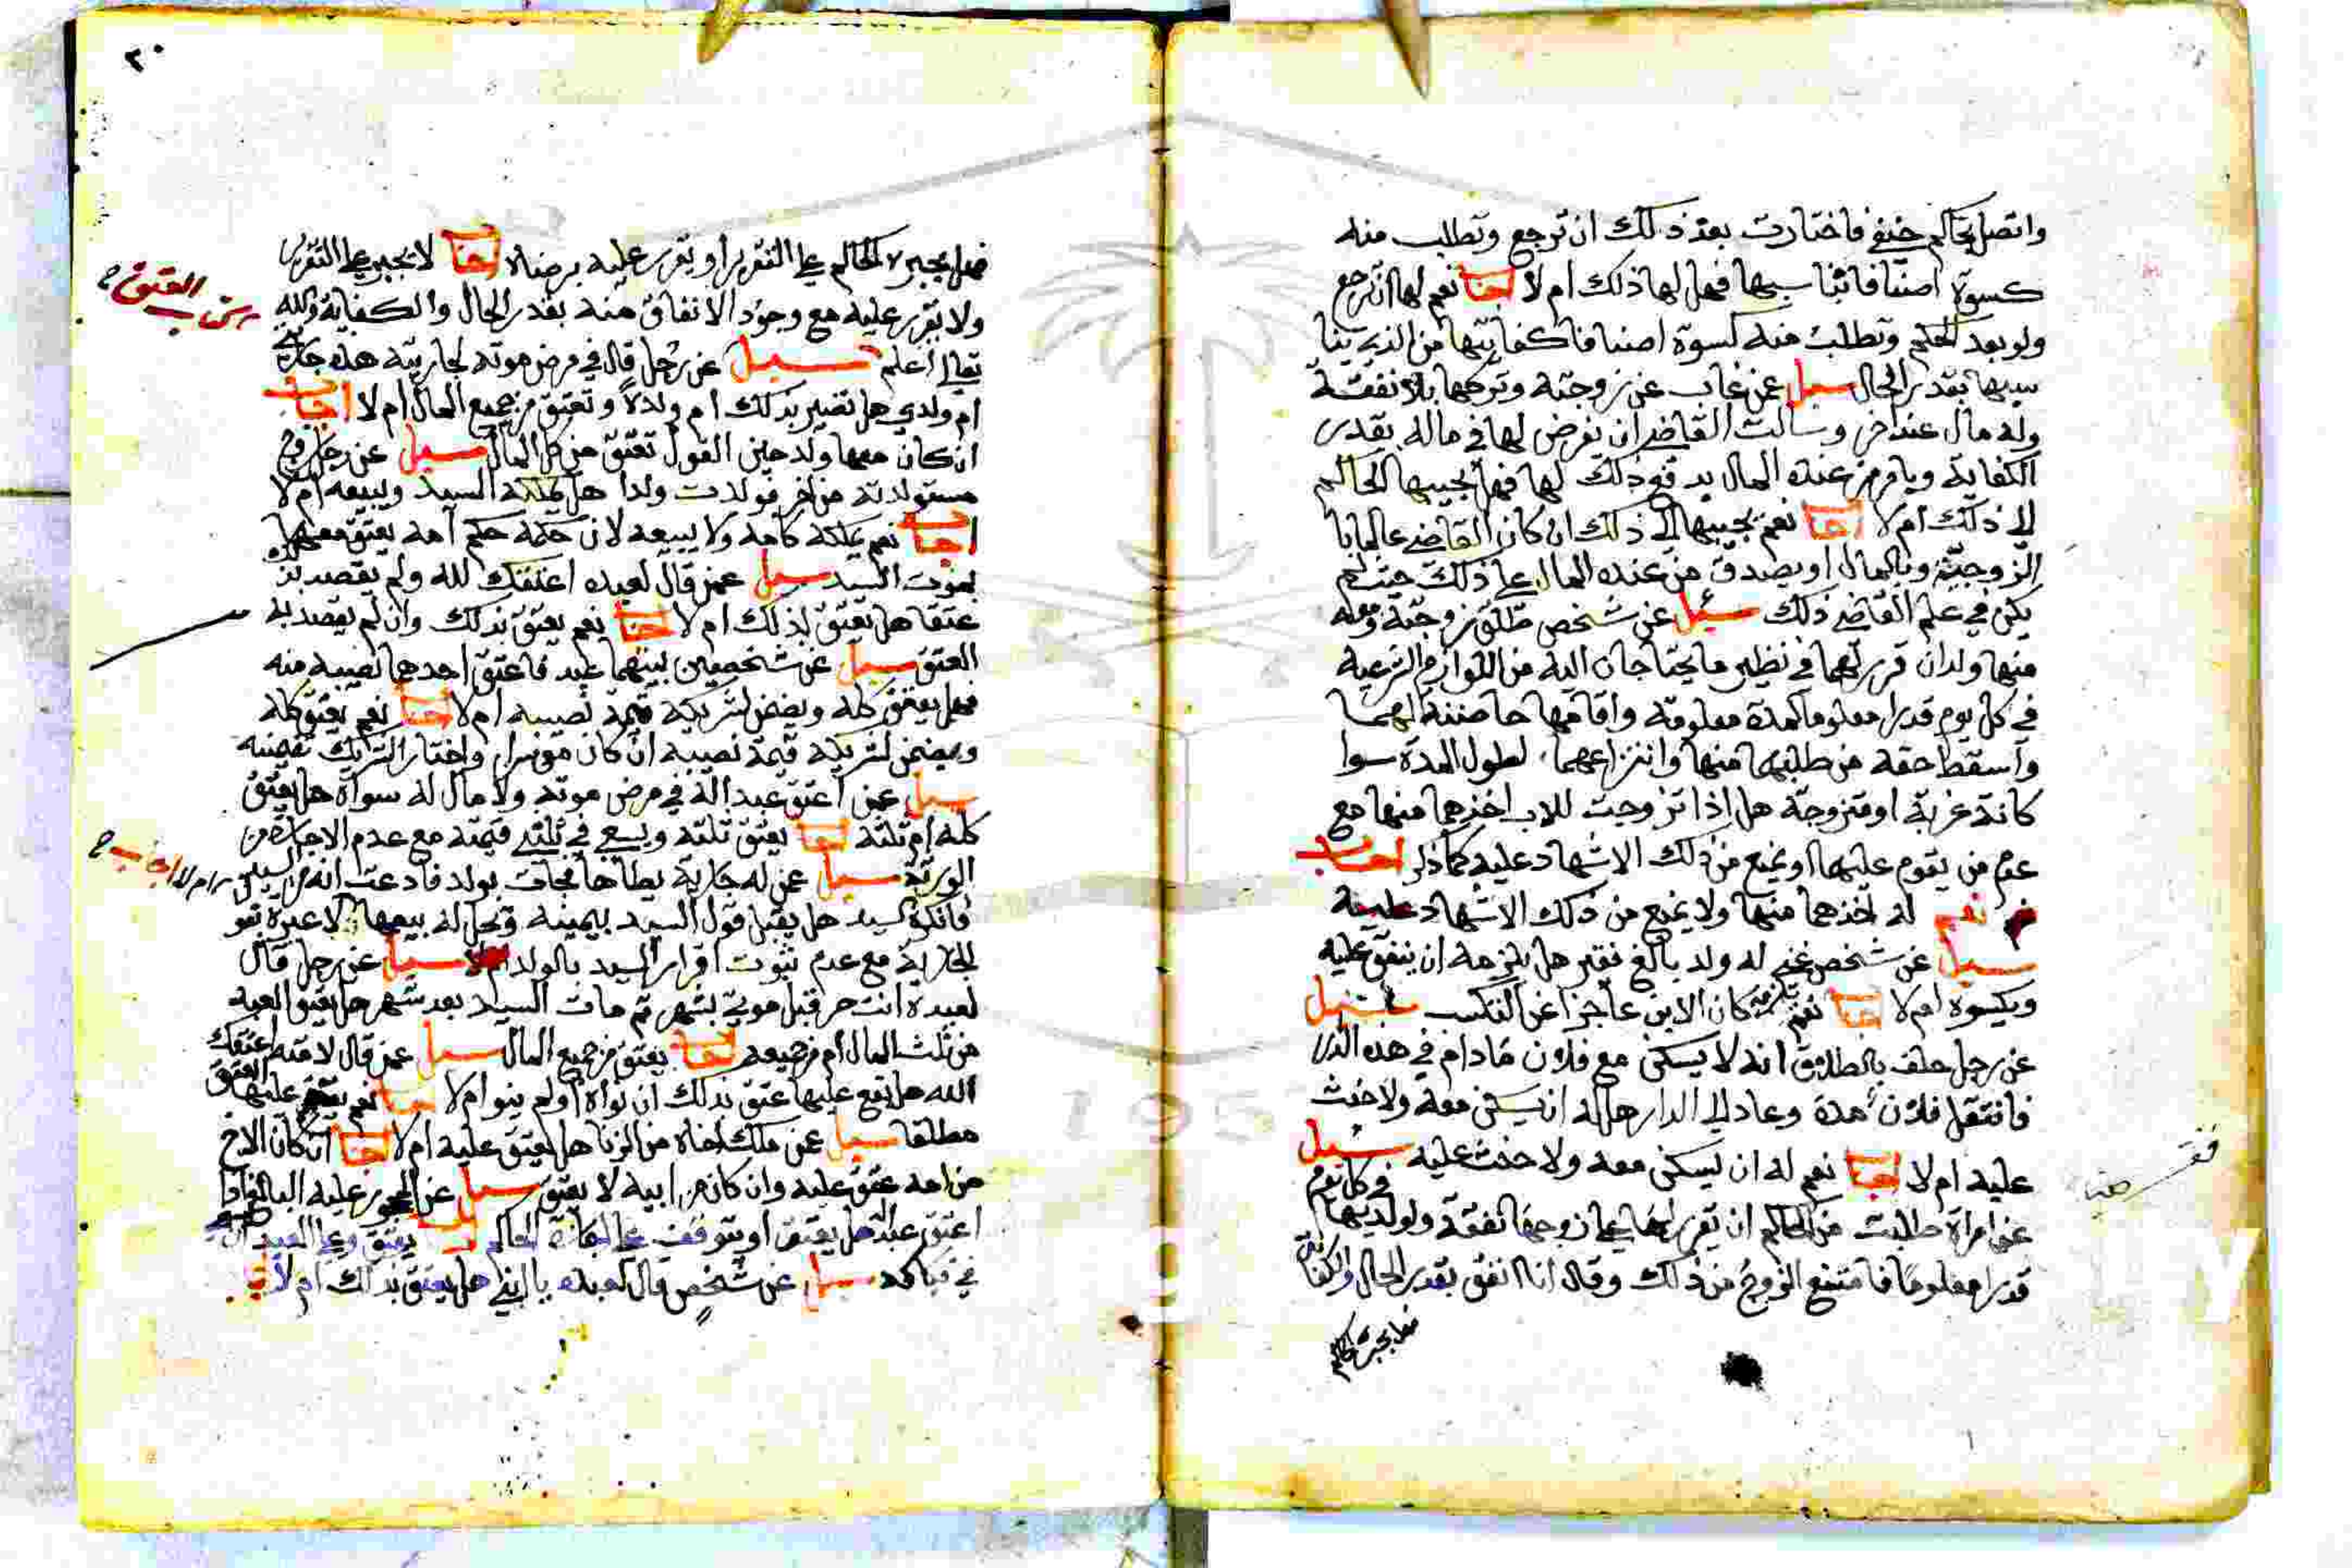 واتصل بحاكم حنفي فاختارت بعد ذلك ان ترجع وتطلب منه
كسوة اصنافا ثيابا سبها فهل لها ذلك ام لا اجاب نعم لها ان ترجع
ولو بعد الحكم وتطلب منه كسوة اصنافا كفايتها من الذي
بقدر الحال سيل عمن غاب عن زوجته وتركها بلا نفقة
وله مال عند اخر وسالت القاضي ان يفرض لها في ماله بقدر
الكفاية ويامر من عنده المال بدفع ذلك لها فهل يجيبها الحاكم
الى ذلك ام لا اجاب نعم يجيبها الى ذلك ان كان القاضي عالما با
الزوجية وبالمال او يصدق من عنده المال على ذلك حيث لم
يكن في علم القاضي ذلك سيل عن شخص طلق زوجته وله
منها ولدان قرر لهما في نظير ما يحتاجان اليه من اللوازم الشرعية
في كل يوم قدرا معلوما لمدة معلومة واقامها حاضنة لهما
واسقط حقه من طلبهما منها وانتزاعهما لطول المدة سوا
كانة عزبة او متزوجة هل اذا تزوجت للاب اخذهما منها مع
عدم من يقوم عليهما او يمنع من ذلك الاشهاد عليه كما ذكر اجاب
نعم له اخذهما منها ولا يمنع من ذلك الاشهاد عليه
سيل عن شخص غني له ولد بالغ فقير هل يلزمه ان ينفق عليه
ويكسوه ام لا اجاب نعم كان الابن عاجزا عن التكسب سئيل
عن رجل حلف بالطلاق انه لا يسكن مع فلان مادام في هذه الدار
فانتقل فلان مدة وعاد الى الدار هل له ان يسكن معه ولا حنث
عليه ام لا اجاب نعم له ان يسكن معه ولا حنث عليه سئيل
عن امراة طلبت من الحاكم ان يقرر لها على زوجها نفقة ولولديها في كل يوم
قدرا معلوما فامتنع الزوج من ذلك وقال انا انفق بقدر الحال والكفاية
٣٠
فهل يجبره الحاكم على التقرير او يقرر عليه برضاه اجاب لا يجبر على التقرير
ولا يقرر عليه مع وجود الانفاق منه بقدر الحال والكفاية والله
تعالى اعلم سيل عن رجل قال في مرض موته لجاريته هذه جارية
ام ولدي هل تصير بذلك ام ولده وتعتق من جميع المال ام لا اجاب
ان كان معها ولد حين القول تعتق من كل المال سيل عن رجل زوج
مستولدته من اخر فولدت ولدا هل يملكه السيد ويبيعه ام لا
اجاب نعم يملكه كامه ولا يبيعه لان حكمه حكم امه يعتق معها
بموت السيد سيل عمن قال لعبده اعتقتك لله ولم يقصد به
عتقا هل يعتق بذلك ام لا اجاب نعم يعتق بذلك وان لم يقصد به
العتق سيل عن شخصين بينهما عبد فاعتق احدهما نصيبه منه
فهل يعتق كله ويضمن لشريكه قيمة نصيبه ام لا اجاب نعم يعتق كله
ويضمن لشريكه قيمة نصيبه ان كان موسرا واختار الشريك تضمينه
سيل عمن اعتق عبدا له في مرض موته ولا مال له سواه هل يعتق
كله ام ثلثه اجاب يعتق ثلثه ويسعى في ثلثي قيمته مع عدم الاجازة من
الورثة سيل عمن له جارية يطاها فجات بولد فادعت انه من السيد
فانكره السيد هل يقبل قول السيد بيمينه ويحل له بيعها لا عبرة بقو
الجارية مع عدم ثبوت اقرار السيد بالولد سيل عن رجل قال
لعبده انت حر قبل موتي بشهر ثم مات السيد بعد شهر هل يعتق العبد
من ثلث المال ام من جميعه اجاب يعتق من جميع المال سيل عمن قال لامته اعتقك
الله هل يقع عليها عتق بذلك ان نواه او لم ينو ام لا اجاب نعم يقع عليها العتق
مطلقا سيل عن ملك اخاه من الزنا هل يعتق عليه ام لا اجاب ان كان الاخ
من امه عتق عليه وان كان من ابيه لا يعتق سيل عن المحجور عليه البالغ اذا
اعتق عبده هل يعتق او يتوقف على اجازة الحاكم يعتق وعلى العبد ان
سيل عن شخص قال لعبده يا ابني هل يعتق بذلك ام لا